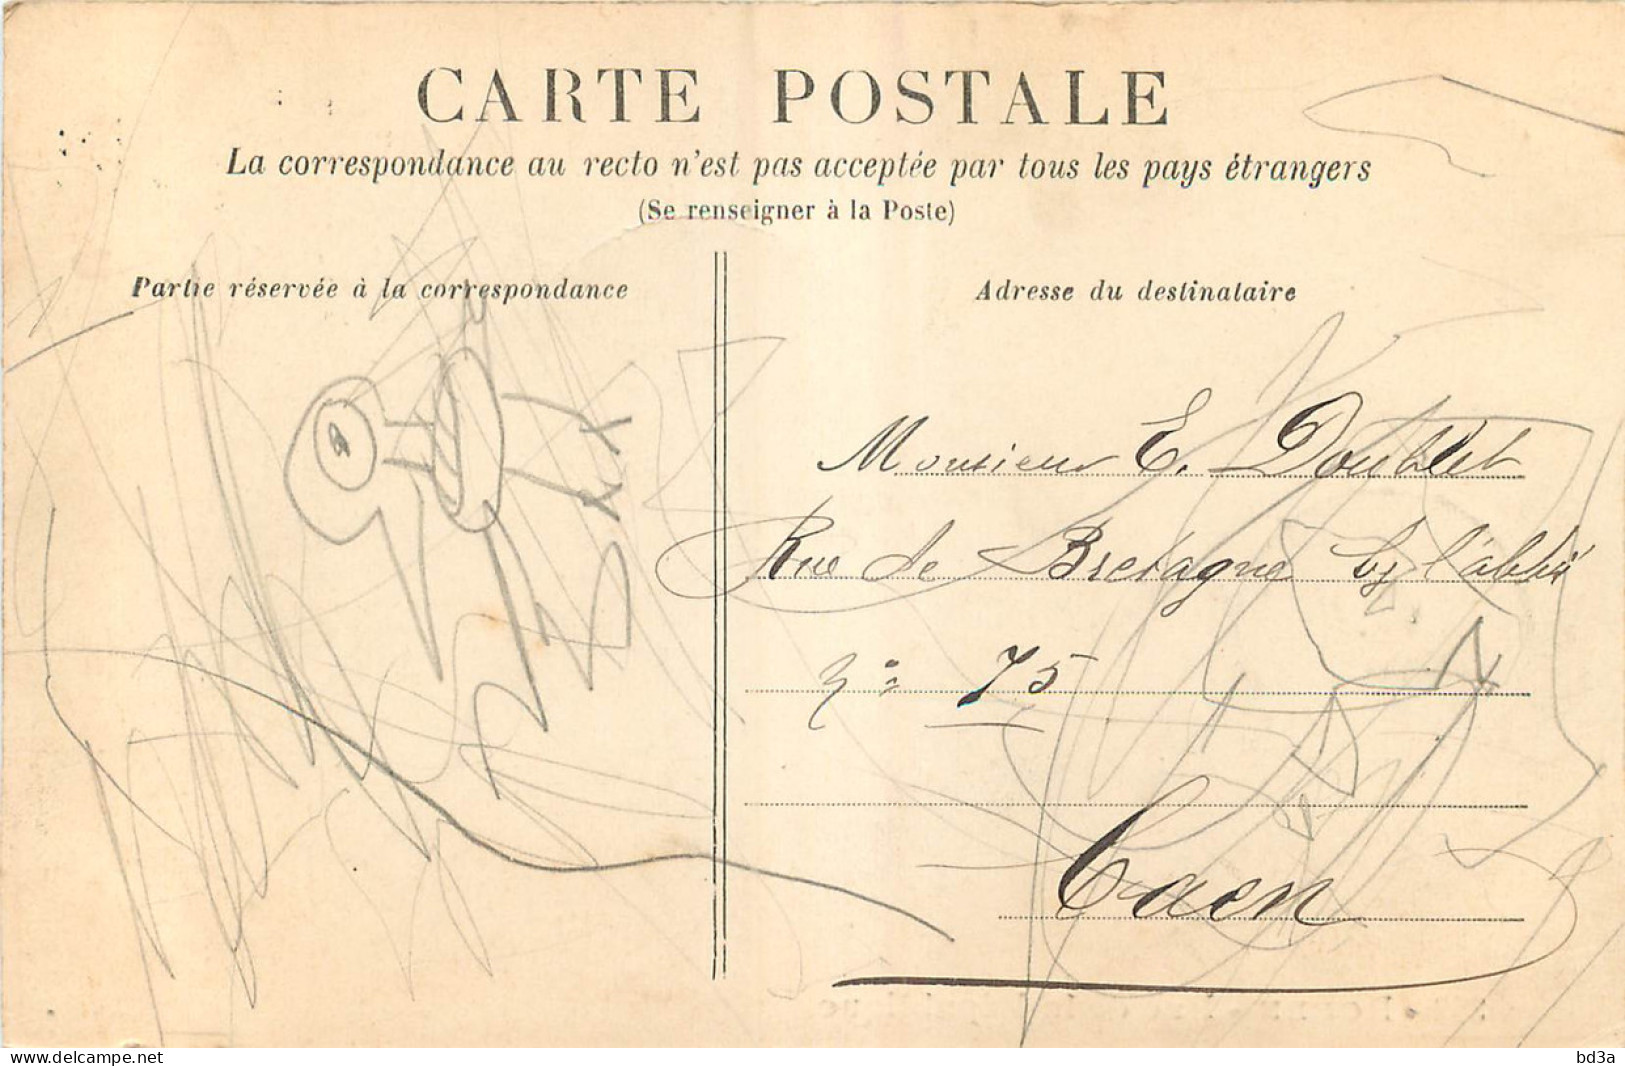 CARTE POSTALE
La correspondance au recto n'est pas acceptée par tous les pays étrangers
(Se renseigner à la Poste)
Partie réservée à la correspondance
Adresse du destinataire
Monsieur E. Doublet
Rue de Bretagne
nº 75
Caen
www.delcampe.net
bd3a